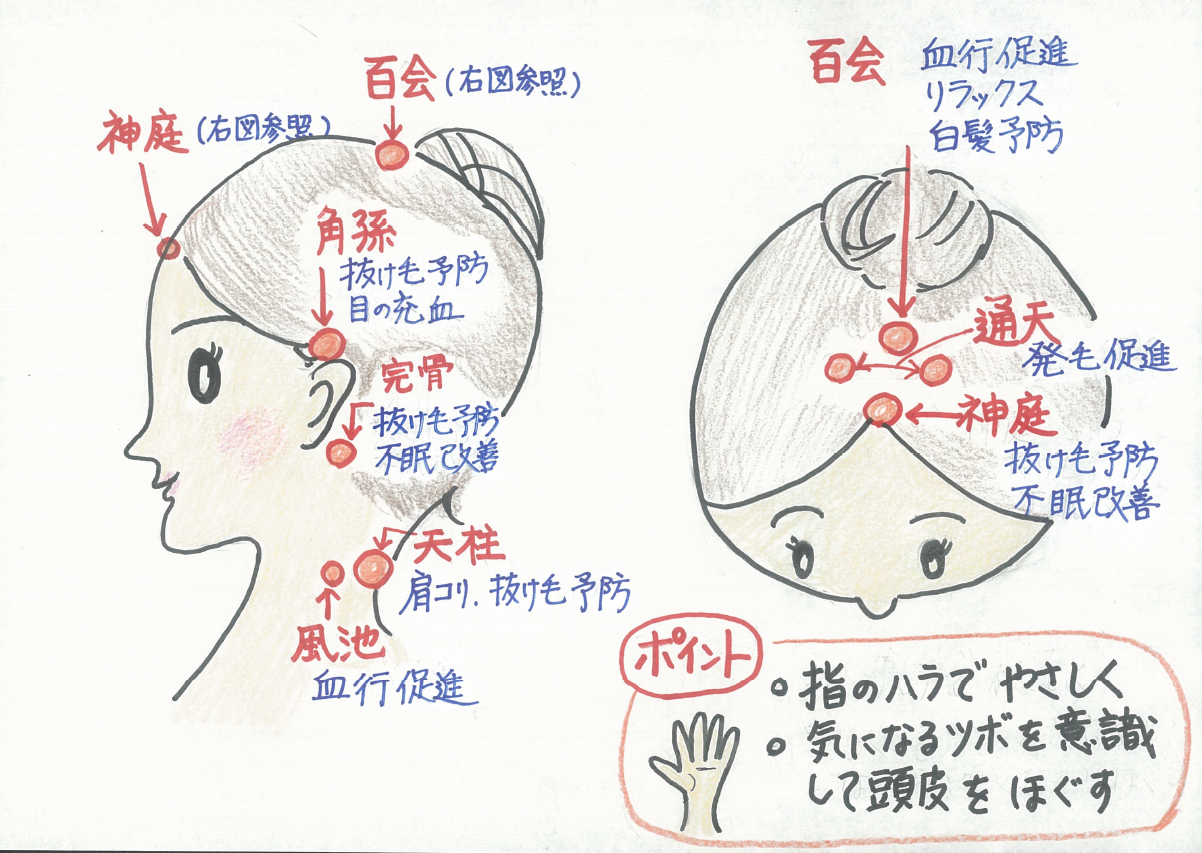 百会(右図参照)
神庭(右図参照)
角孫
抜け毛予防
目の充血
完骨
抜け毛予防
不眠改善
天柱
肩コリ、抜け毛予防
風池
血行促進
百会
血行促進
リラックス
白髪予防
通天
発毛促進
神庭
抜け毛予防
不眠改善
ポイント
・指のハラでやさしく
・気になるツボを意識
して頭皮をほぐす